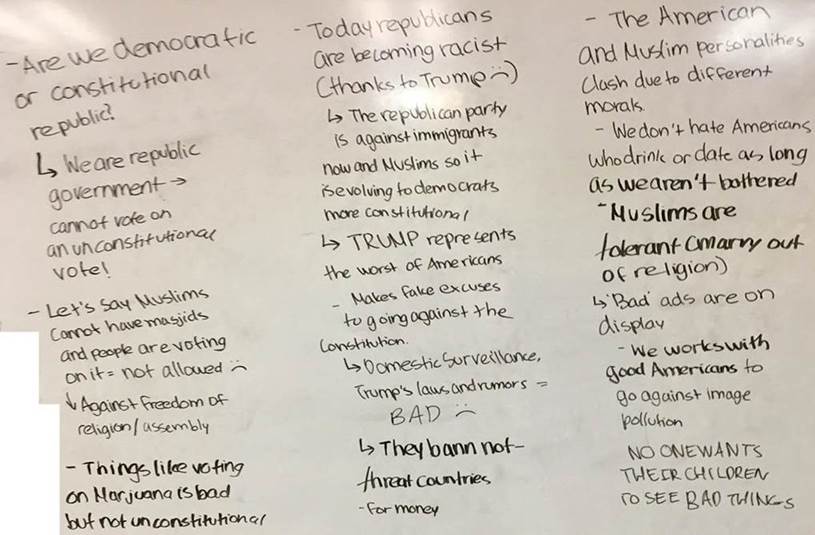 - Are we democratic
or constitutional
republic?
↳ We are republic
government →
cannot vote on
an unconstitutional
vote!
- Let's say Muslims
cannot have masjids
and people are voting
on it = not allowed :(
↳ Against freedom of
religion/assembly
- Things like voting
on Marjuana is bad
but not unconstitutional
- Today republicans
are becoming racist
(thanks to Trump :()
↳ The republican party
is against immigrants
now and Muslims so it
is evolving to democrats
more constitutional
↳ TRUMP represents
the worst of Americans
- Makes fake excuses
to going against the
constitution.
↳ Domestic Surveillance,
Trump's laws and rumors =
BAD :(
↳ They bann not-
threat countries
- for money
- The American
and Muslim personalities
clash due to different
morals.
- We don't hate Americans
who drink or date as long
as we aren't bothered
- Muslims are
tolerant (marry out
of religion)
↳ 'Bad' ads are on
display
- We works with
good Americans to
go against image
pollution
NO ONE WANTS
THEIR CHILDREN
TO SEE BAD THINGS